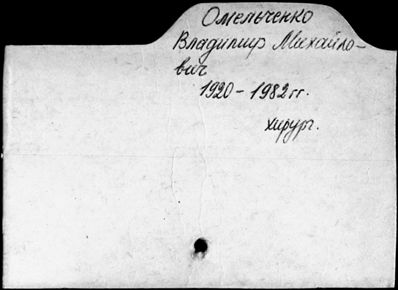 Омельченко
Владимир Михайло-
вич
1920 - 1982 гг.
хирург.